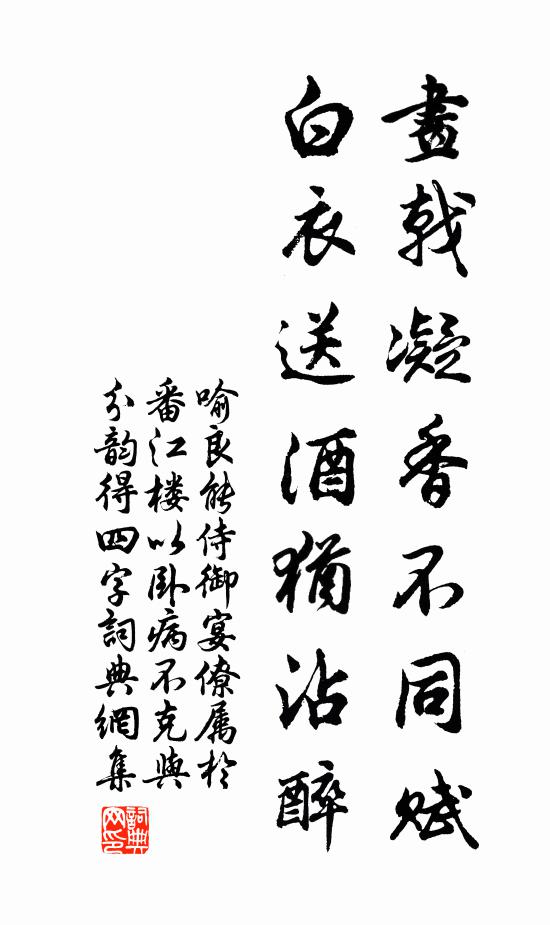 畫戟凝香不同赋
白衣送酒猶沾醉
喻良能侍御宴僚属於
番江楼以卧病不克與
分韵得四字詞典網集
詞典网印